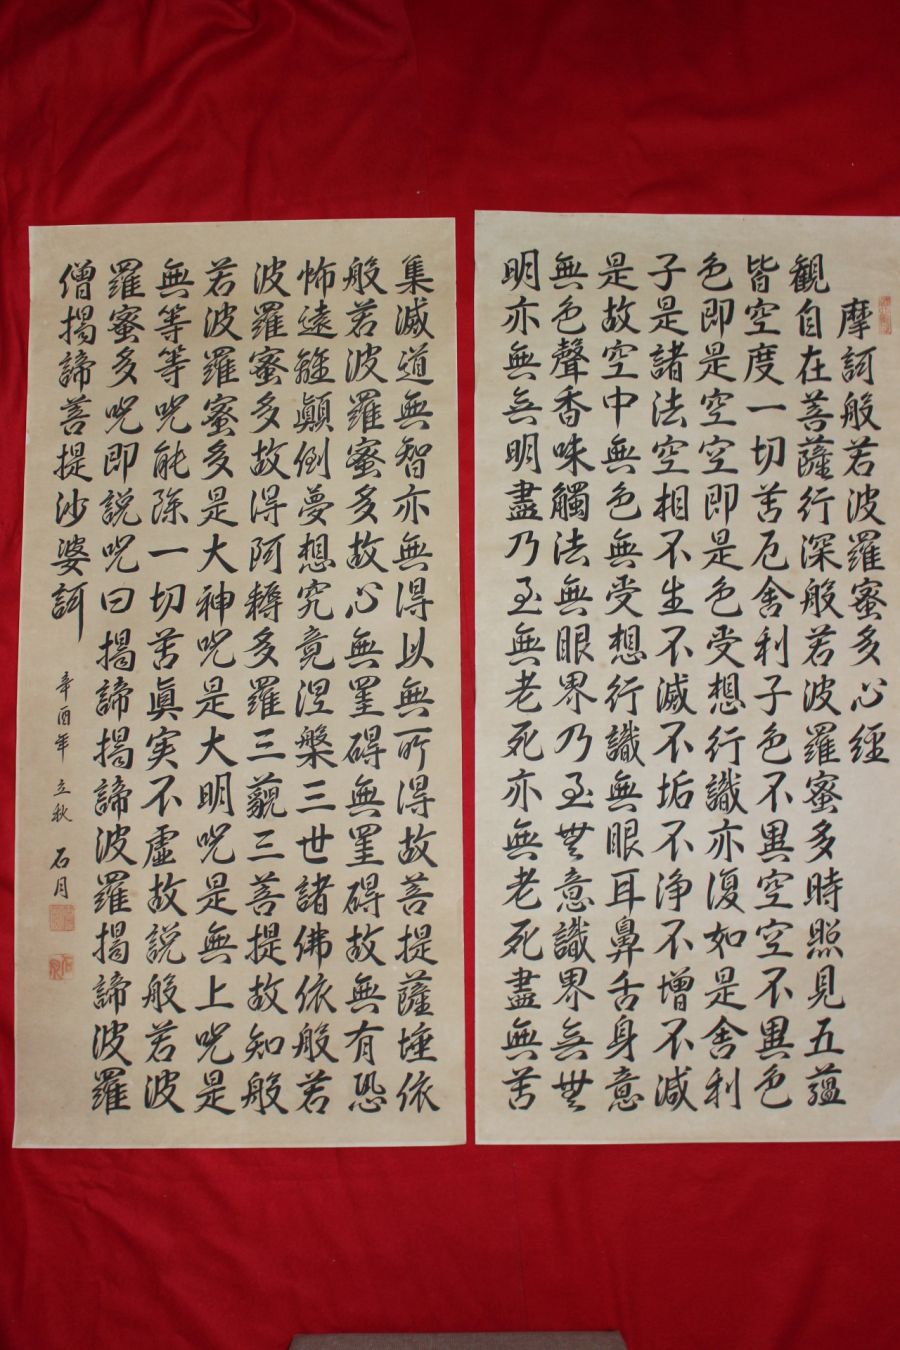 摩訶般若波羅蜜多心經
観自在菩薩行深般若波羅蜜多時照見五蘊
皆空度一切苦厄舍利子色不異空空不異色
色即是空空即是色受想行識亦復如是舍利
子是諸法空相不生不滅不垢不浄不增不減
是故空中無色無受想行識無眼耳鼻舌身意
無色聲香味觸法無眼界乃至無意識界無無
明亦無無明盡乃至無老死亦無老死盡無苦
集滅道無智亦無得以無所得故菩提薩埵依
般若波羅蜜多故心無罣碍無罣碍故無有恐
怖遠離顛倒夢想究竟涅槃三世諸佛依般若
波羅蜜多故得阿耨多羅三藐三菩提故知般
若波羅蜜多是大神呪是大明呪是無上呪是
無等等呪能除一切苦真実不虛故説般若波
羅蜜多呪即説呪曰揭諦揭諦波羅揭諦波羅
僧揭諦菩提沙婆訶
辛酉年 立秋 石月